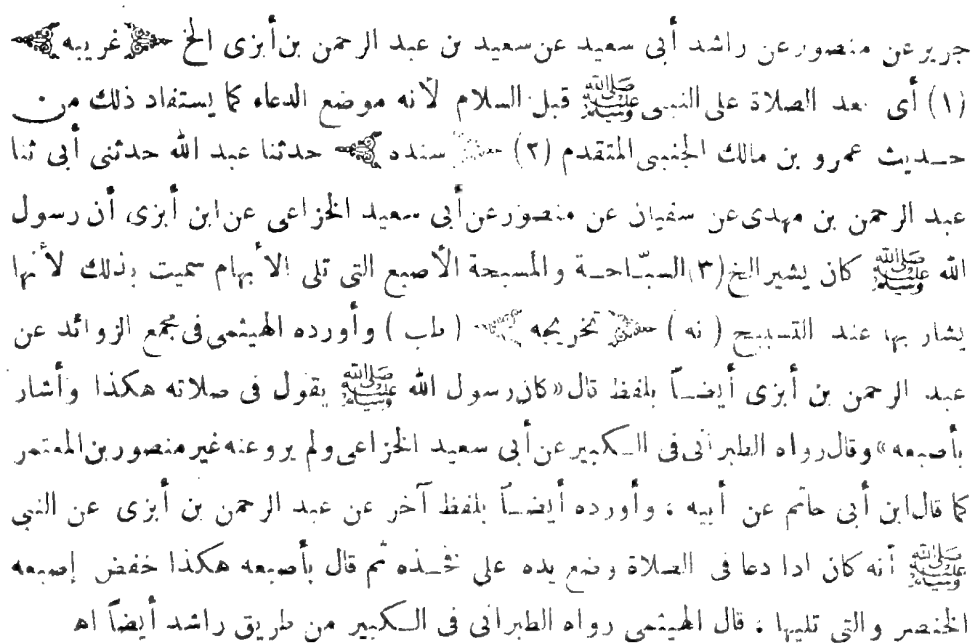 جرير عن منصور عن راشد أبى سعيد عن سعيد بن عبد الرحمن بن أبزى الخ ﴿غريبه﴾
(١) أى بعد الصلاة على النبى ﷺ قبل السلام لأنه موضع الدعاء كما يستفاد ذلك من
حديث عمرو بن مالك الجنبى المتقدم (٢) ﴿سنده﴾ حدثنا عبد الله حدثنى أبى ثنا
عبد الرحمن بن مهدى عن سفيان عن منصور عن أبى سعيد الخزاعى عن ابن أبزى أن رسول
الله ﷺ كان يشير الخ (٣) السبّاحة والمسبحة الأصبع التى تلى الأبهام سميت بذلك لأنها
يشار بها عند التسبيح (نه) ﴿تخريجه﴾ (طب) وأورده الهيثمى فى مجمع الزوائد عن
عبد الرحمن بن أبزى أيضاً بلفظ قال «كان رسول الله ﷺ يقول فى صلاته هكذا وأشار
بأصبعه» وقال رواه الطبرانى فى الكبير عن أبى سعيد الخزاعى ولم يرو عنه غير منصور بن المعتمر
كما قال ابن أبى حاتم عن أبيه ، وأورده أيضاً بلفظ آخر عن عبد الرحمن بن أبزى عن النبى
ﷺ أنه كان اذا دعا فى الصلاة وضع يده على فخذه ثم قال بأصبعه هكذا خفض إصبعه
الخنصر والتى تليها ، قال الهيثمى رواه الطبرانى فى الكبير من طريق راشد أيضاً اه